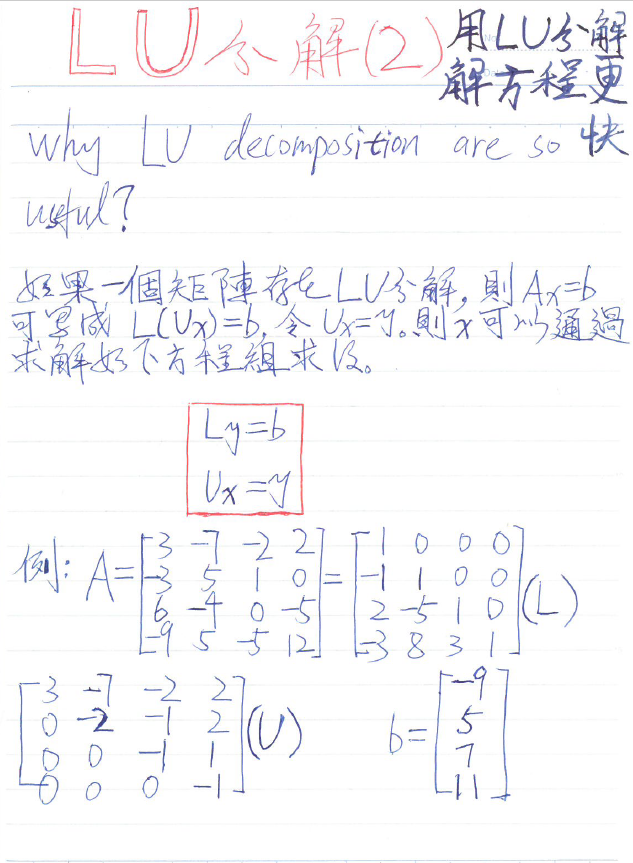 LU分解(2) 用LU分解
解方程更
快
why LU decomposition are so
useful?
如果一個矩陣存在LU分解,則Ax=b
可写成 L(Ux)=b,令Ux=y。則x可以通過
求解如下方程組求得。
Ly=b
Ux=y
例: A=[3 -7 -2 2 = [1 0 0 0
-3 5 1 0 -1 1 0 0
6 -4 0 -5 2 -5 1 0 (L)
-9 5 -5 12] -3 8 3 1]
[3 -7 -2 2 [-9
0 -2 -1 2 (U) b= 5
0 0 -1 1 7
0 0 0 -1] 11]